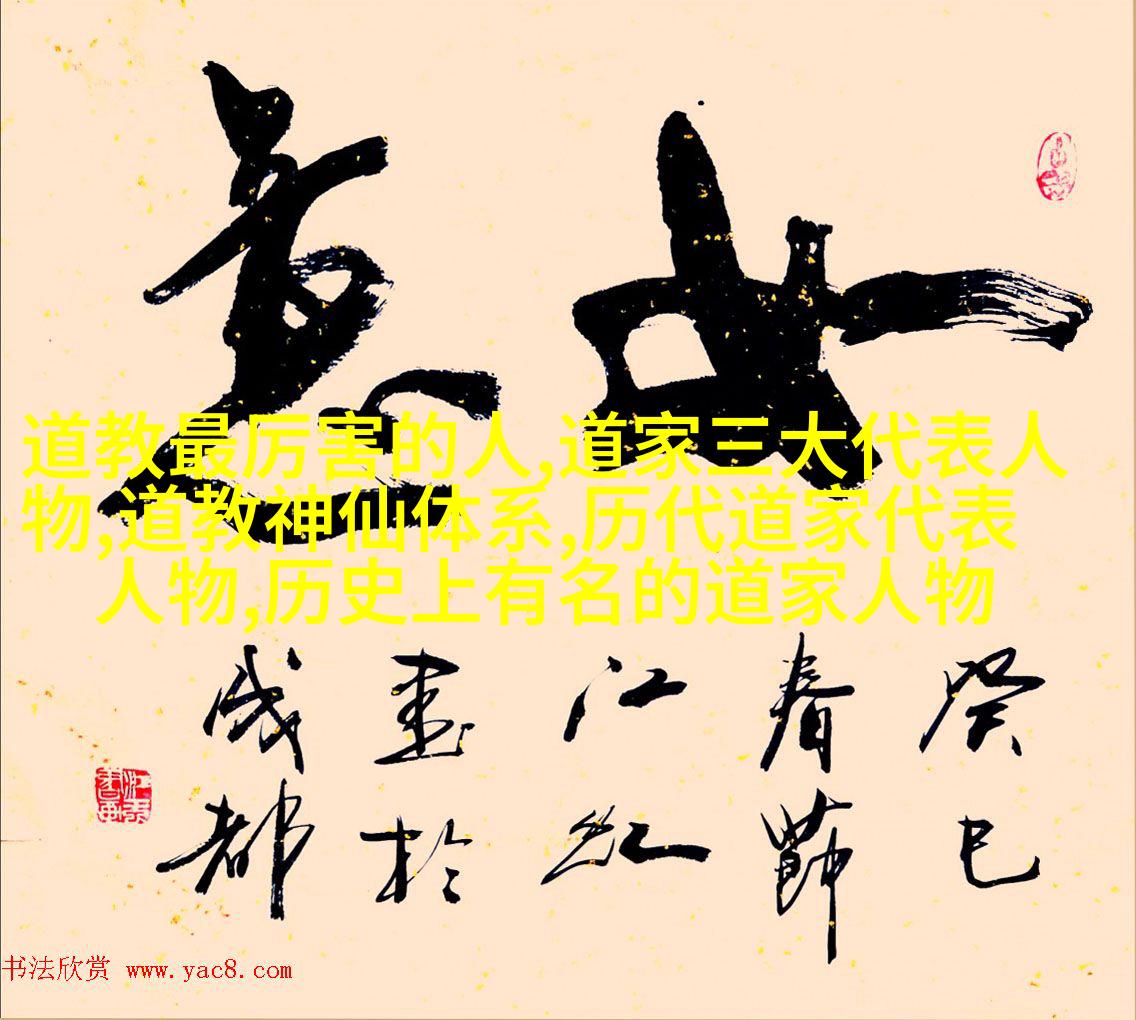 如意
道教最厉害的人,道家三大代表人
物,道教神仙体系,历代道家代表
人物,历史上有名的道家人物
癸巳
春節
江红
書於
成都
书法欣赏 www.yac8.com